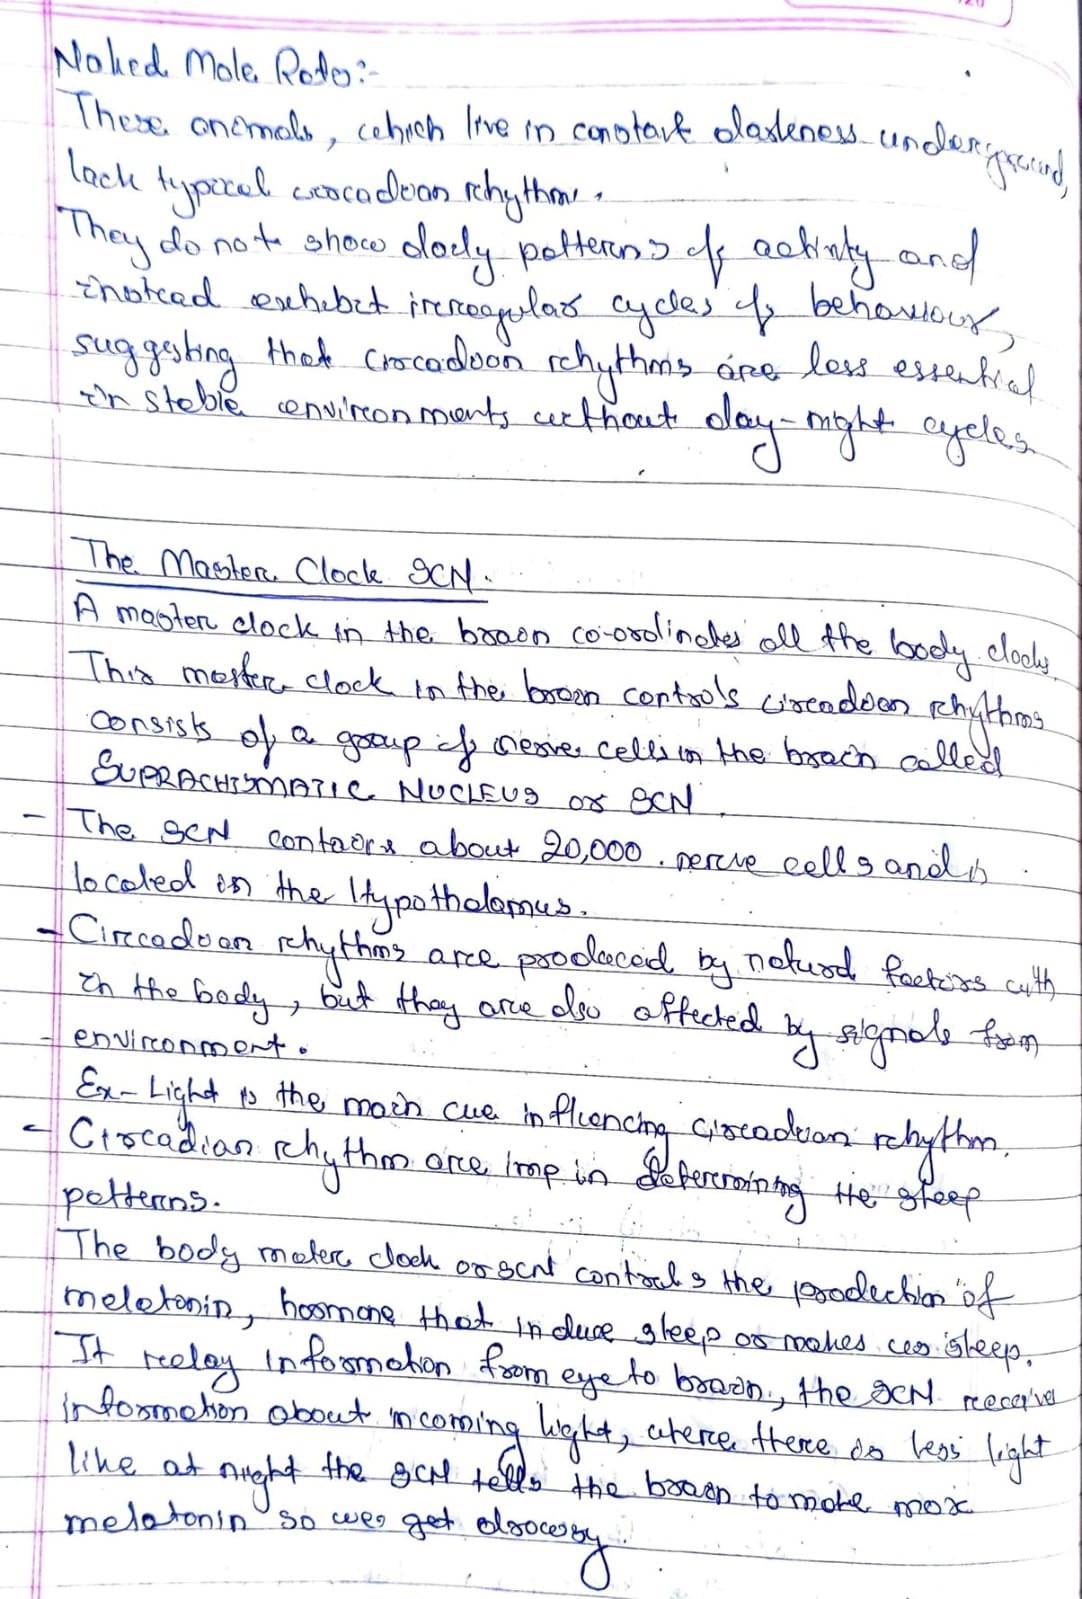 Naked Mole Rats:-
These animals, which live in constant darkness underground,
lack typical circadian rhythm.
They do not show daily patterns of activity and
instead exhibit irregular cycles of behaviour,
suggesting that circadian rhythms are less essential
in stable environments without day-night cycles.
The Master Clock SCN.
A master clock in the brain co-ordinates all the body clocks.
This master clock in the brain controls circadian rhythms
consists of a group of nerve cells in the brain called
SUPRACHISMATIC NUCLEUS or SCN.
- The SCN contains about 20,000 nerve cells and is
located in the Hypothalamus.
- Circadian rhythms are produced by natural factors with
in the body, but they are also affected by signals from
- environment.
Ex- Light is the main cue influencing circadian rhythm.
- Circadian rhythm are imp in determining the sleep
patterns.
The body mater clock or SCN controls the production of
melatonin, hormone that induce sleep or makes us sleep.
It relay information from eye to brain, the SCN receive
information about incoming light, where there is less light
like at night the SCN tells the brain to make max
melatonin so we get drowsy.